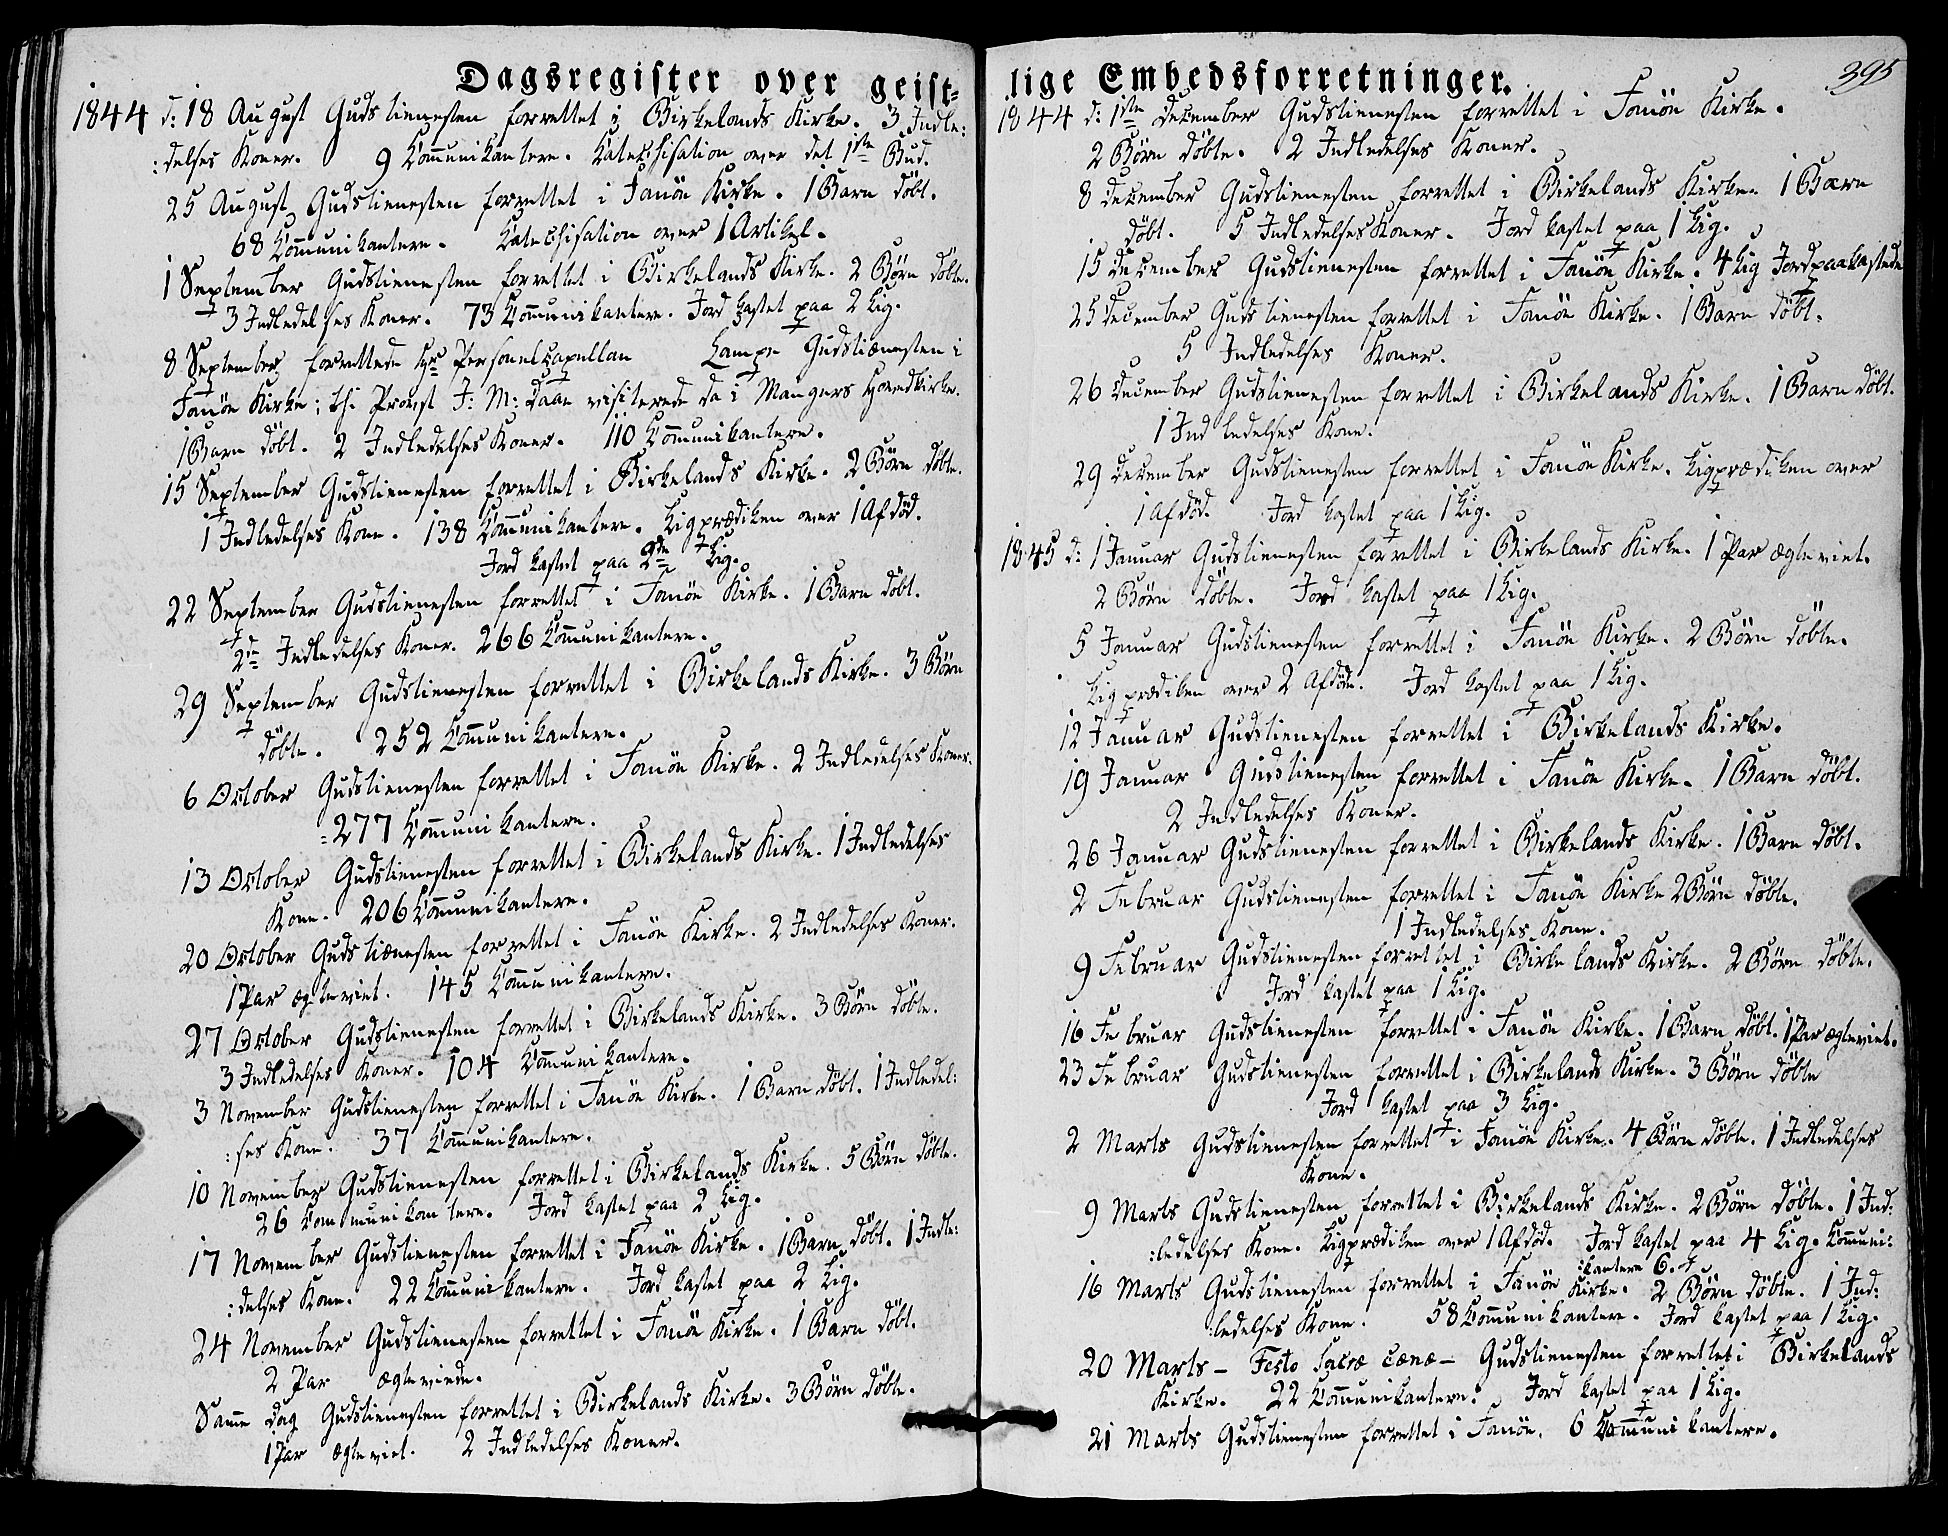 Dagsregister over geist-
1844 d: 18 August Gudstienesten forrettet i Birkelands Kirke. 3 Indle:
:delses Koner. 9 Com̄unikantere. Catechisation over det 1ste Bud.
25 August Gudstienesten forrettet i Fanöe Kirke. 1 Barn döbt.
68 Com̄unikantere. Catechisation over 1 Artikel.
1 September Gudstienesten forrettet i Birkelands Kirke. 2 Börn döbte.
3 Indledelses Koner. 73 Com̄unikantere. Jord kastet paa 2 Lig.
8 September forrettede Hr Personelcapellan Lampe Gudstiænesten i
Fanöe Kirke; thi Provst J: M: Daae visiterede da i Mangers Hovedkirke.
1 Barn döbt. 2 Indledelses Koner. 110 Com̄unikantere.
15 September Gudstienesten forrettet i Birkelands Kirke. 2 Börn döbte.
1 Indledelses Kone. 138 Com̄unikantere. Ligprædiken over 1 Afdöd.
Jord kastet paa 2de Lig.
22 September Gudstienesten forrettet i Fanöe Kirke. 1 Barn döbt.
2de Indledelses Koner. 266 Com̄unikantere.
29 September Gudstienesten forrettet i Birkelands Kirke. 3 Börn
döbte. 252 Com̄unikantere.
6 October Gudstienesten forrettet i Fanöe Kirke. 2 Indledelses Koner.
277 Com̄unikantere.
13 October Gudstienesten forrettet i Birkelands Kirke. 1 Indledelses
Kone. 206 Com̄unikantere.
20 October Gudstiænesten forrettet i Fanöe Kirke. 2 Indledelses Koner.
1 Par ægteviet. 145 Com̄unikantere.
27 October Gudstienesten forrettet i Birkelands Kirke. 3 Börn döbte.
3 Indledelses Koner. 104 Com̄unikantere.
3 November Gudstienesten forrettet i Fanöe Kirke. 1 Barn döbt. 1 Indledel:
:ses Kone. 37 Com̄unikantere.
10 November Gudstienesten forrettet i Birkelands Kirke. 5 Börn döbte.
26 Communikantere. Jord kastet paa 2 Lig.
17 November Gudstienesten forrettet i Fanöe Kirke. 1 Barn döbt. 1 Indle:
:delses Kone. 22 Com̄unikantere. Jord kastet paa 2 Lig.
24 November Gudstienesten forrettet i Fanöe Kirke. 1 Barn döbt.
2 Par ægteviede.
Sam̄e Dag Gudstienesten forrettet i Birkelands Kirke. 3 Börn döbte.
1 Par ægteviet. 2 Indledelses Koner.
lige Embedsforretninger. 395
1844 d: 1ste December Gudstienesten forrettet i Fanöe Kirke.
2 Börn döbte. 2 Indledelses Koner.
8 December Gudstienesten forrettet i Birkelands Kirke. 1 Barn
döbt. 5 Indledelses Koner. Jord kastet paa 1 Lig.
15 December Gudstienesten forrettet i Fanöe Kirke. 4 Lig Jordpaakastede
25 December Gudstienesten forrettet i Fanöe Kirke. 1 Barn döbt.
5 Indledelses Koner.
26 December Gudstienesten forrettet i Birkelands Kirke. 1 Barn döbt.
1 Indledelses Kone.
29 December Gudstienesten forrettet i Fanöe Kirke. Ligprædiken over
1 Afdöd. Jord kastet paa 1 Lig.
1845 d: 1 Januar Gudstienesten forrettet i Birkelands Kirke. 1 Par ægteviet.
2 Börn döbte. Jord kastet paa 1 Lig.
5 Januar Gudstienesten forrettet i Fanöe Kirke. 2 Börn döbte.
Ligprædiken over 2 Afdöde. Jord kastet paa 1 Lig.
12 Januar Gudstienesten forrettet i Birkelands Kirke.
19 Januar Gudstienesten forrettet i Fanöe Kirke. 1 Barn döbt.
2 Indledelses Koner.
26 Januar Gudstienesten forrettet i Birkelands Kirke. 1 Barn döbt.
2 Februar Gudstienesten forrettet i Fanöe Kirke 2 Börn döbte.
1 Indledelses Kone.
9 Februar Gudstienesten forrettet i Birkelands Kirke. 2 Börn döbte.
Jord kastet paa 1 Lig.
16 Februar Gudstienesten forrettet i Fanöe Kirke. 1 Barn döbt. 1 Par ægteviet.
23 Februar Gudstienesten forrettet i Birkelands Kirke. 3 Börn döbte
Jord kastet paa 3 Lig.
2 Marts Gudstienesten forrettet i Fanöe Kirke. 4 Börn döbte. 1 Indledelses
Kone.
9 Marts Gudstienesten forrettet i Birkelands Kirke. 2 Börn döbte. 1 Ind:
:ledelses Kone. Ligprædiken over 1 Afdöd. Jord kastet paa 4 Lig. Com̄uni:
:kantere 6.
16 Marts Gudstienesten forrettet i Fanöe Kirke. 2 Börn döbte. 1 Ind:
:ledelses Kone. 58 Com̄unikantere. Jord kastet paa 1 Lig.
20 Marts – Festo Sacræ Cænæ – Gudstienesten forrettet i Birkelands
Kirke. 22 Com̄unikantere. Jord kastet paa 1 Lig.
21 Marts Gudstienesten forrettet i Fanöe. 6 Com̄unikantere.